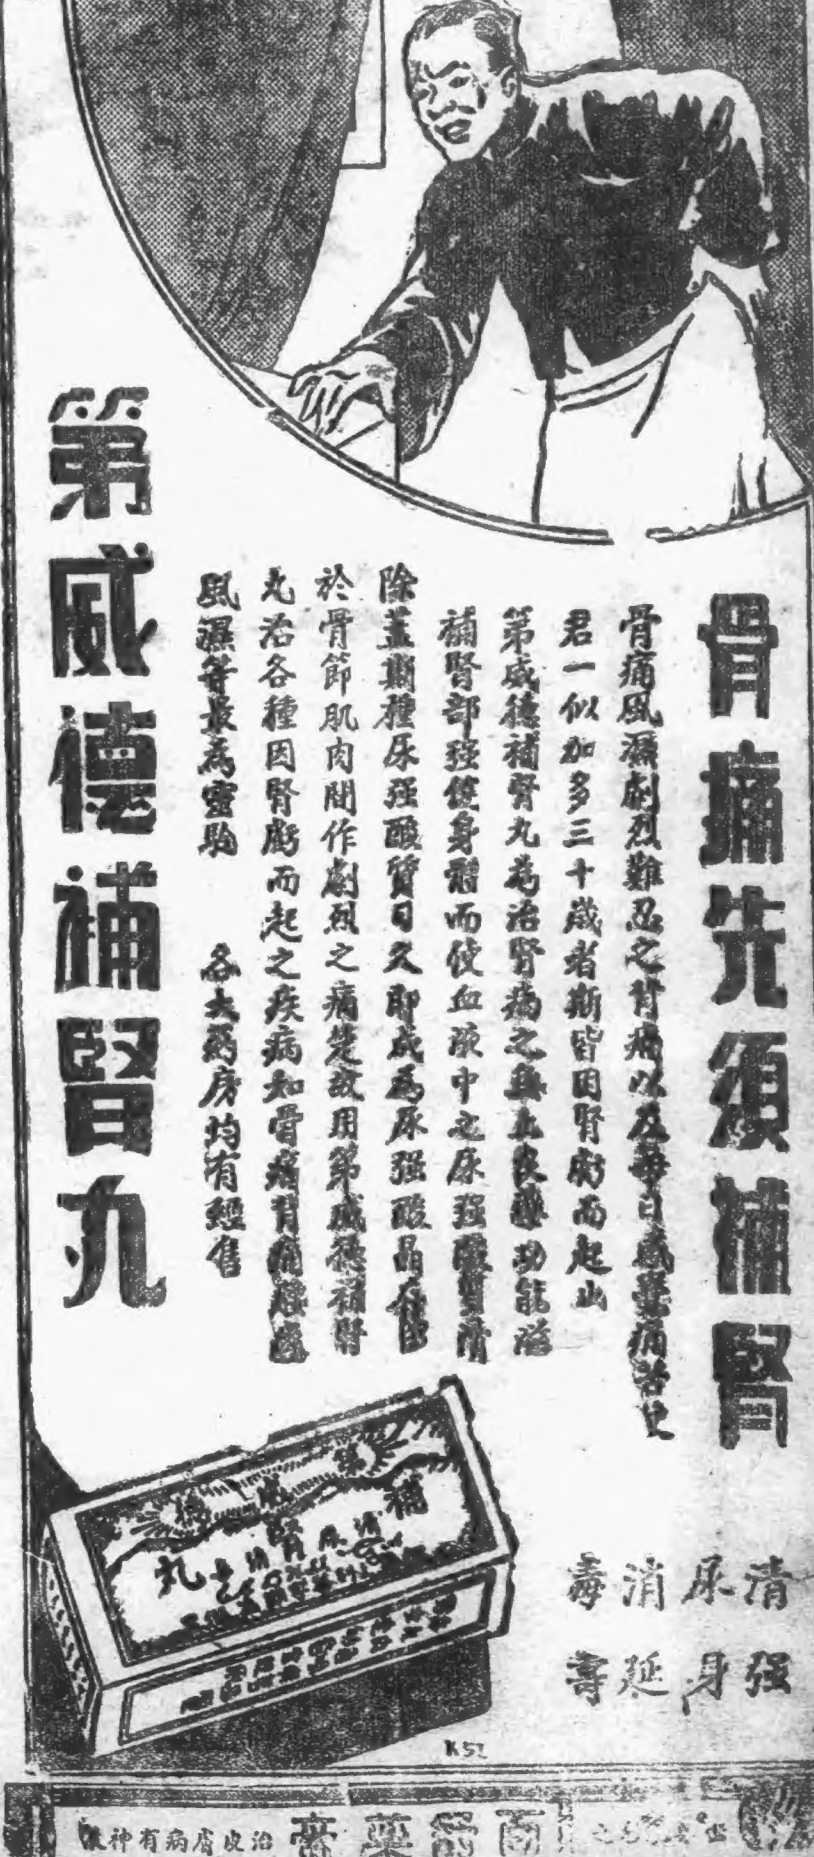 骨痛先須補腎
骨痛風濕劇烈難忍之背痛以及每日感覺痛苦使
君一似加多三十歲者斯皆因腎虧而起也
第威德補腎丸為治腎病之無上良藥功能滋
補腎部強健身體而使血液中之尿強酸質清
除蓋斯種尿強酸質日久即成為尿強酸晶
於骨節肌肉間作劇烈之痛楚故用第威德補腎
丸治各種因腎虧而起之疾病如骨痛背痛腰
風濕等最為靈驗 各大藥房均有經售
第威德補腎丸
清尿消毒
强身延壽
第威德
補腎丸
K52
百 藥膏
治皮膚病有神效